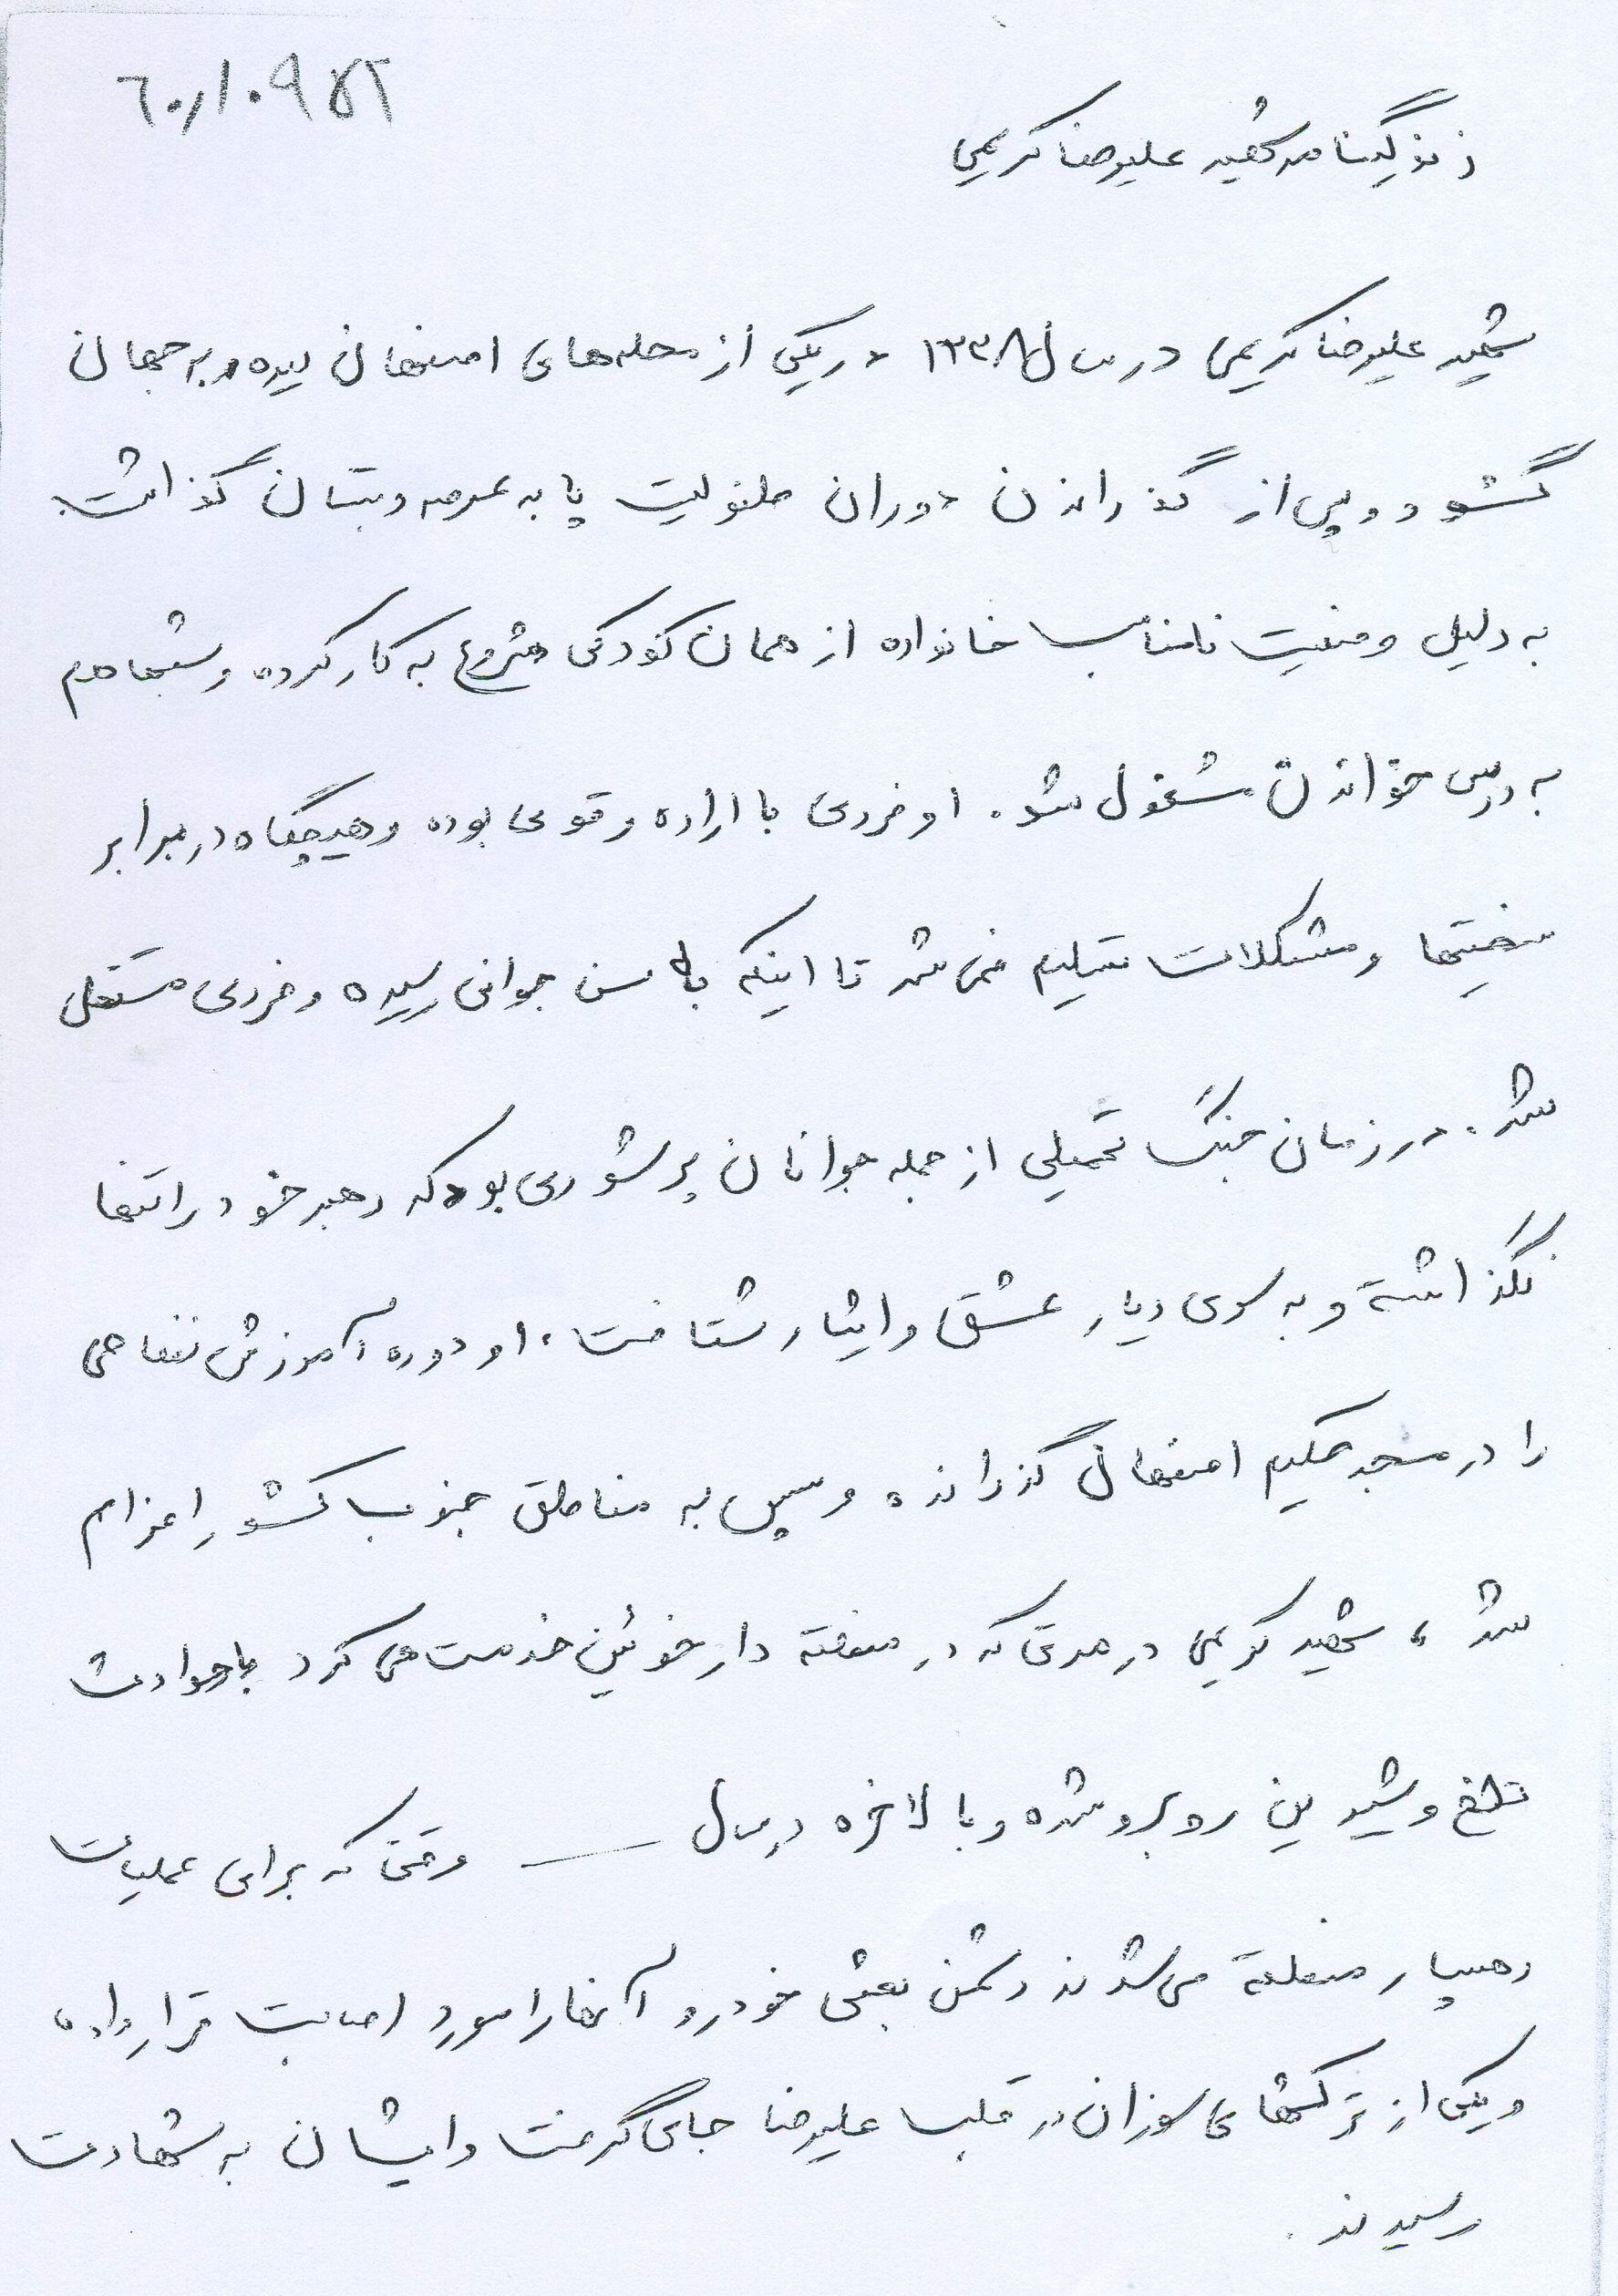 ۶۰۱۰۹۵۲
زندگینامه شهید علیرضا کریمی
شهید علیرضا کریمی در سال ۱۳۳۸ در یکی از محله‌های اصفهان دیده به جهان
گشود و پس از گذراندن دوران طفولیت پا به عرصه دبستان گذاشت.
به دلیل وضعیت نامناسب خانواده از همان کودکی شروع به کار کرده و شبها هم
به درس خواندن مشغول شد. او فردی با اراده و قوی بوده و هیچگاه در برابر
سختیها و مشکلات تسلیم نمی شد تا اینکه به سن جوانی رسیده و فردی مستقل
شد. در زمان جنگ تحمیلی از جمله جوانان پر شوری بود که رهبر خود را تنها
نگذاشته و به سوی دیار عشق و ایثار شتافت، او دوره آموزش نظامی
را در مسجد حکیم اصفهان گذرانده و سپس به مناطق جنوب کشور اعزام
شد، شهید کریمی در مدتی که در منطقه دارخوئین خدمت می کرد با حوادث
تلخ و شیرین روبرو شده و بالاخره در سال ــــ وقتی که برای عملیات
رهسپار منطقه می شدند دشمن بعثی خودرو آنها را مورد اصابت قرار داده
و یکی از ترکشهای سوزان در قلب علیرضا جای گرفت و ایشان به شهادت
رسیدند.